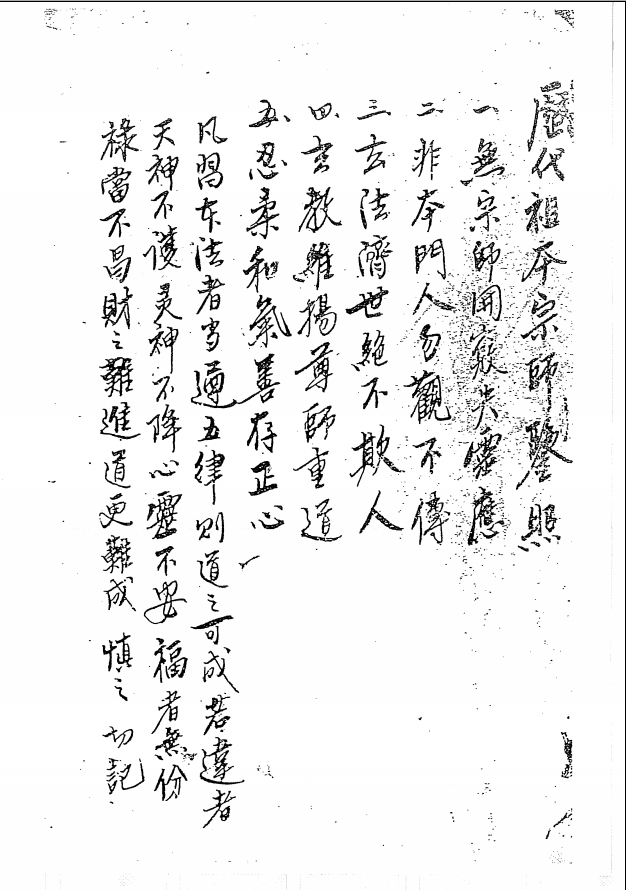 歷代祖本宗師鑒照
一 無宗師開竅失靈應
二 非本門人勿觀不傳
三、玄法濟世絕不欺人
四、玄教維揚尊師重道
五、忍柔和氣善存正心
凡習本法者当遵五律則道之可成若違者
天神不護灵神不降心靈不安福者無份
祿當不昌財之難進道更難成 慎之 切記